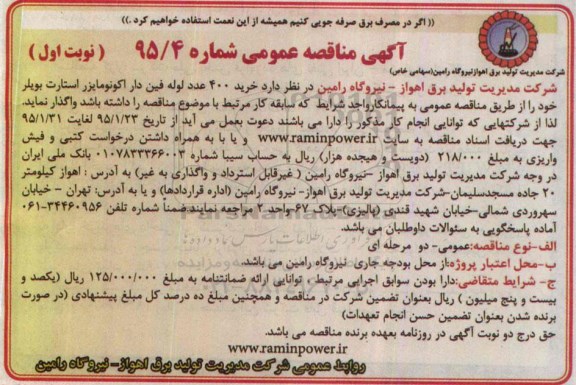 (( اگر در مصرف برق صرفه جویی کنیم همیشه از این نعمت استفاده خواهیم کرد .))
آگهی مناقصه عمومی شماره ۹۵/۴ ( نوبت اول )
شرکت مدیریت تولید برق اهوازنیروگاه رامین(سهامی خاص)
شرکت مدیریت تولید برق اهواز – نیروگاه رامین در نظر دارد خرید ۴۰۰ عدد لوله فین دار اکونومایزر استارت بویلر
خود را از طریق مناقصه عمومی به پیمانکارواجد شرایط که سابقه کار مرتبط با موضوع مناقصه را داشته باشد واگذار نماید.
لذا از شرکتهایی که توانایی انجام کار مذکور را دارا می باشند دعوت بعمل می آید از تاریخ ۹۵/۱/۲۳ لغایت ۹۵/۱/۳۱
جهت دریافت اسناد مناقصه به سایت www.raminpower.ir و یا با به همراه داشتن درخواست کتبی و فیش
واریزی به مبلغ ۲۱۸/۰۰۰ (دویست و هیجده هزار) ریال به حساب سیبا شماره ۰۱۰۷۸۳۳۳۶۶۰۰۳ بانک ملی ایران
در وجه شرکت مدیریت تولید برق اهواز –نیروگاه رامین ( غیرقابل استرداد و واگذاری به غیر) به آدرس : اهواز کیلومتر
۲۰ جاده مسجدسلیمان–شرکت مدیریت تولید برق اهواز- نیروگاه رامین (اداره قراردادها) و یا به آدرس: تهران – خیابان
سهروردی شمالی –خیابان شهید قندی (پالیزی)-پلاک ۶۷–واحد ۲ مراجعه نمایند.ضمناً شماره تلفن ۳۴۴۶۰۹۵۶-۰۶۱
آماده پاسخگویی به سئوالات داوطلبان می باشد.
الف-نوع مناقصه:عمومی- دو مرحله ای
ب-محل اعتبار پروژه:از محل بودجه جاری نیروگاه رامین می باشد.
ج- شرایط متقاضی:دارا بودن سوابق اجرایی مرتبط، توانایی ارائه ضمانتنامه به مبلغ ۱۲۵/۰۰۰/۰۰۰ ریال (یکصد و
بیست و پنج میلیون ) ریال بعنوان تضمین شرکت در مناقصه و همچنین مبلغ ده درصد کل مبلغ پیشنهادی (در صورت
برنده شدن بعنوان تضمین حسن انجام تعهدات)
حق درج دو نوبت آگهی در روزنامه بعهده برنده مناقصه می باشد.
www.raminpower.ir
روابط عمومی شرکت مدیریت تولید برق اهواز- نیروگاه رامین